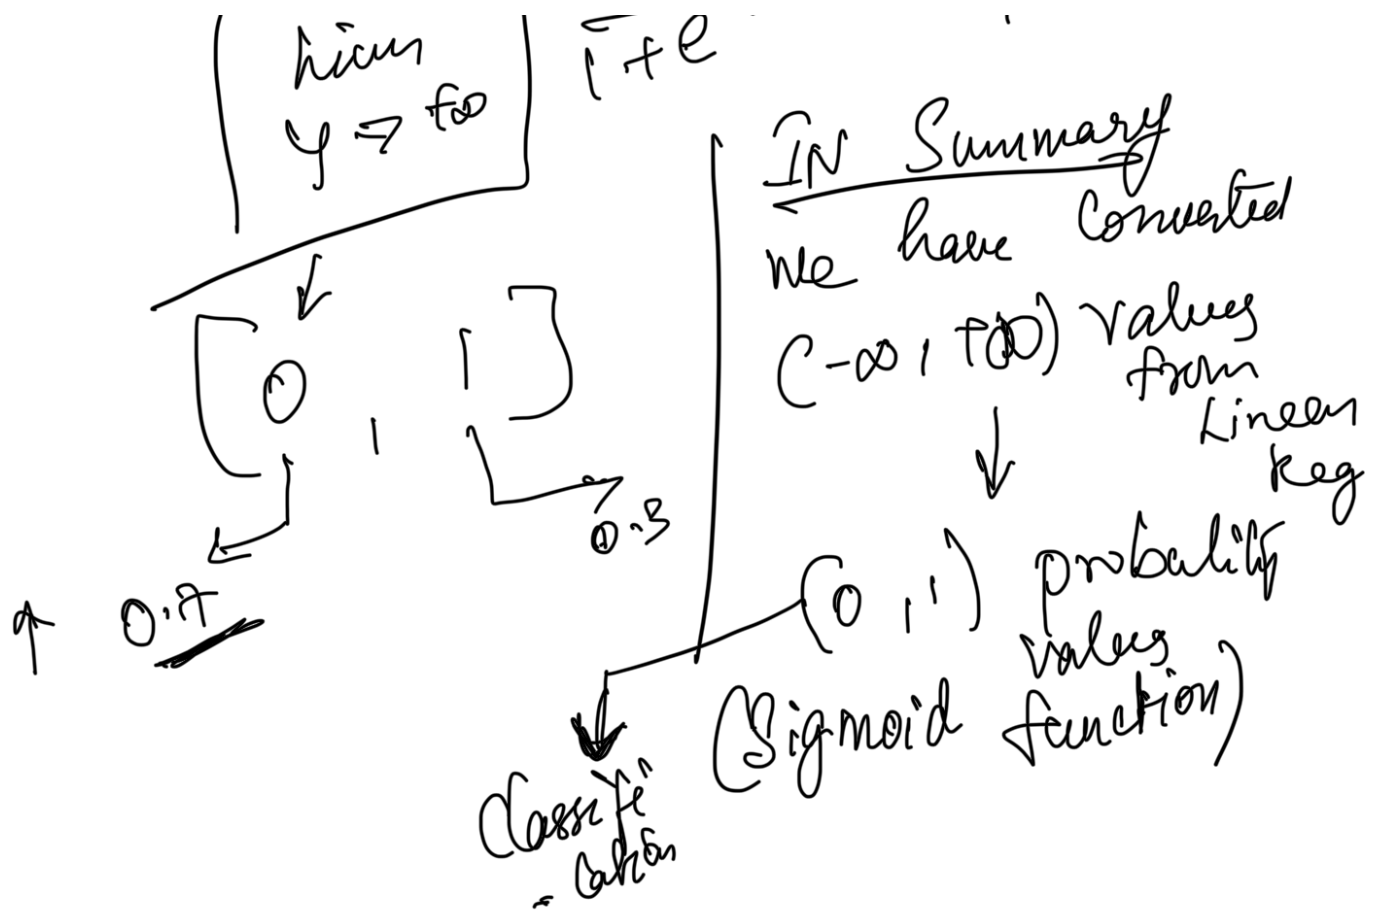 1 + e
y → +∞
[0 , 1]
0.7
0.3
IN Summary
We have Converted
(-∞, +∞) values
from
Linear
Reg
(0, 1) probality
values
(Sigmoid function)
Classifi
- cation